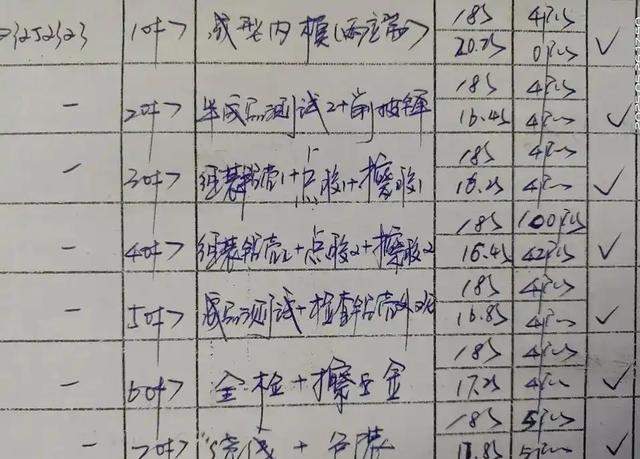 18S 4Pcs
1附> 成型内模(两定带) 20.2S 0Pcs ✓
18S 4Pcs
— 2附> 半成品测试2+ 16.4S 4Pcs ✓
18S 4Pcs
— 3附> 组装铝壳1+点胶1+擦胶1 16.2S 4Pcs ✓
18S 100Pcs
— 4附> 组装铝壳2+点胶2+擦胶2 16.4S 42Pcs ✓
18S 4Pcs
— 5附> 成品测试+检查铝壳外观 16.8S 4Pcs ✓
18S 4Pcs
— 6附> 全检+擦五金 17.2S 4Pcs ✓
18S 5Pcs
— 7附> 绕线+包装 17.8S 5Pcs ✓